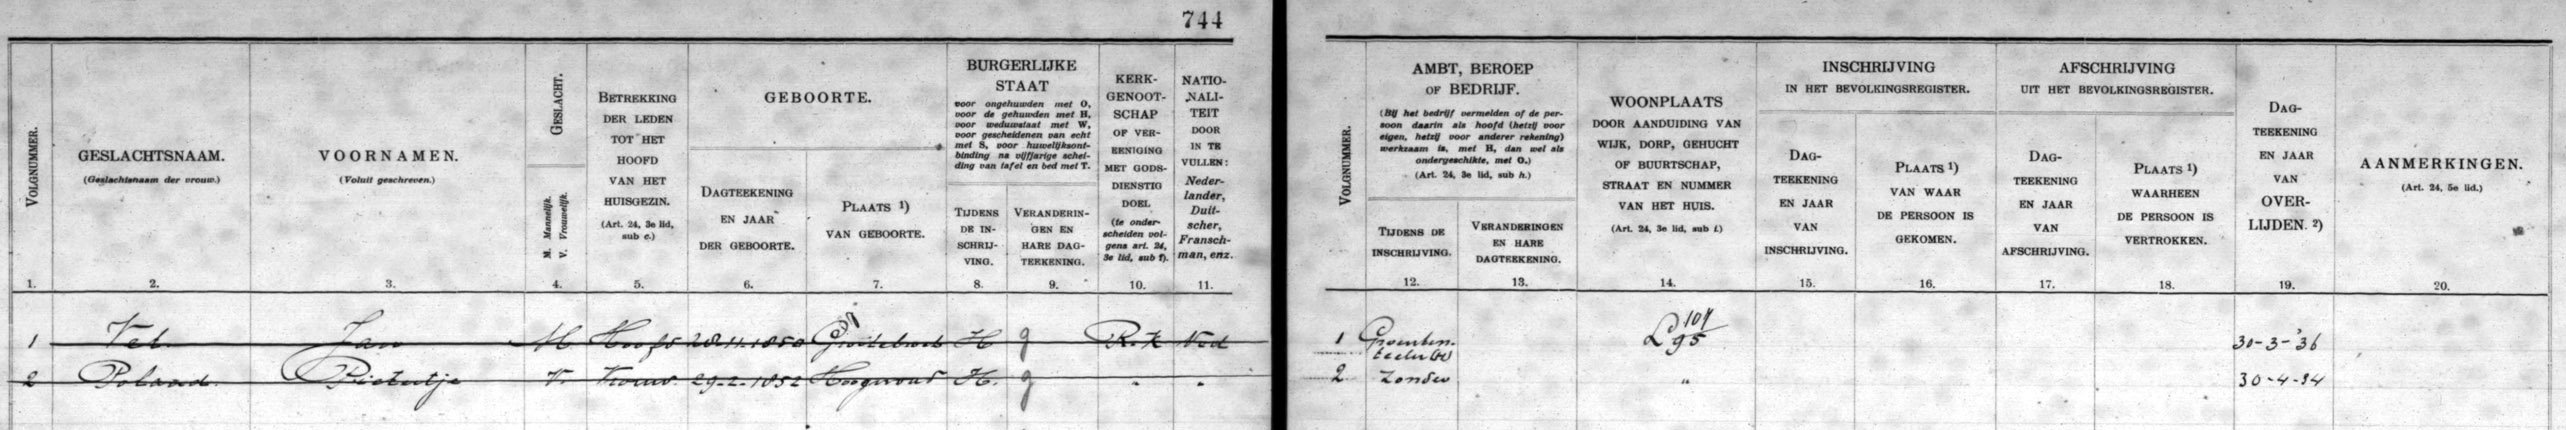 744
VOLGNUMMER.
GESLACHTSNAAM.
(Geslachtsnaam der vrouw.)
VOORNAMEN.
(Voluit geschreven.)
GESLACHT.
M. Mannelijk.
V. Vrouwelijk.
BETREKKING
DER LEDEN
TOT HET
HOOFD
VAN HET
HUISGEZIN.
(Art. 24, 3e lid,
sub e.)
GEBOORTE.
DAGTEEKENING
EN JAAR
DER GEBOORTE.
PLAATS 1)
VAN GEBOORTE.
BURGERLIJKE
STAAT
voor ongehuwden met O,
voor de gehuwden met H,
voor weduwstaat met W,
voor gescheidenen van echt
met S, voor huwelijksont-
binding na vijfjarige schei-
ding van tafel en bed met T.
TIJDENS
DE IN-
SCHRIJ-
VING.
VERANDERIN-
GEN EN
HARE DAG-
TEEKENING.
KERK-
GENOOT-
SCHAP
OF VER-
EENIGING
MET GODS-
DIENSTIG
DOEL
(te onder-
scheiden vol-
gens art. 24,
3e lid, sub f).
NATIO-
NALI-
TEIT
DOOR
IN TE
VULLEN:
Neder-
lander,
Duit-
scher,
Fransch-
man, enz.
VOLGNUMMER.
AMBT, BEROEP
OF BEDRIJF.
(Bij het bedrijf vermelden of de per-
soon daarin als hoofd (hetzij voor
eigen, hetzij voor anderer rekening)
werkzaam is, met H, dan wel als
ondergeschikte, met O.)
(Art. 24, 3e lid, sub h.)
TIJDENS DE
INSCHRIJVING.
VERANDERINGEN
EN HARE
DAGTEEKENING.
WOONPLAATS
DOOR AANDUIDING VAN
WIJK, DORP, GEHUCHT
OF BUURTSCHAP,
STRAAT EN NUMMER
VAN HET HUIS.
(Art. 24, 3e lid, sub i.)
INSCHRIJVING
IN HET BEVOLKINGSREGISTER.
DAG-
TEEKENING
EN JAAR
VAN
INSCHRIJVING.
PLAATS 1)
VAN WAAR
DE PERSOON IS
GEKOMEN.
AFSCHRIJVING
UIT HET BEVOLKINGSREGISTER.
DAG-
TEEKENING
EN JAAR
VAN
AFSCHRIJVING.
PLAATS 1)
WAARHEEN
DE PERSOON IS
VERTROKKEN.
DAG-
TEEKENING
EN JAAR
VAN
OVER-
LIJDEN. 2)
AANMERKINGEN.
(Art. 24, 5e lid.)
1. 2. 3. 4. 5. 6. 7. 8. 9. 10. 11. 12. 13. 14. 15. 16. 17. 18. 19. 20.
1 Vet Jan M Hoofd 28-11-1850 Grootebroek H g R.K Ned 1 Groenten- L 95 104 30-3-'36
2 Polaad. Pietertje V. Vrouw 29-2-1852 Hoogwoud H. g " " 2 Zonder " 30-4-34